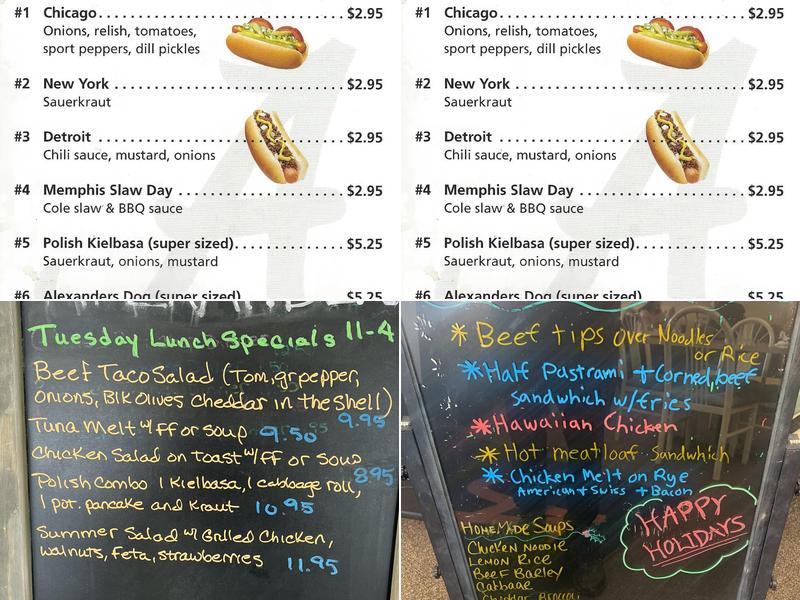 #1 Chicago........................................ $2.95
Onions, relish, tomatoes,
sport peppers, dill pickles
#2 New York........................................ $2.95
Sauerkraut
#3 Detroit........................................ $2.95
Chili sauce, mustard, onions
#4 Memphis Slaw Day........................... $2.95
Cole slaw & BBQ sauce
#5 Polish Kielbasa (super sized)................. $5.25
Sauerkraut, onions, mustard
#6 Alexanders Dog (super sized) $5.25
#1 Chicago........................................ $2.95
Onions, relish, tomatoes,
sport peppers, dill pickles
#2 New York........................................ $2.95
Sauerkraut
#3 Detroit........................................ $2.95
Chili sauce, mustard, onions
#4 Memphis Slaw Day........................... $2.95
Cole slaw & BBQ sauce
#5 Polish Kielbasa (super sized)................. $5.25
Sauerkraut, onions, mustard
#6 Alexanders Dog (super sized) $5.25
Tuesday Lunch Specials 11-4
Beef Taco Salad (Tom, gr pepper,
onions, Blk Olives cheddar in the shell)
9.95
Tuna Melt w/ FF or soup 9.50
Chicken Salad on toast w/ FF or soup
8.95
Polish Combo 1 Kielbasa, 1 cabbage roll,
1 pot. pancake and Kraut 10.95
Summer Salad w/ Grilled Chicken,
walnuts, feta, strawberries 11.95
* Beef tips over Noodles
or Rice
* Half Pastrami + Corned beef
sandwhich w/fries
* Hawaiian Chicken
* Hot meatloaf Sandwhich
* Chicken Melt on Rye
American + Swiss + Bacon
HAPPY
HOLIDAYS
HomeMade Soups
Chicken Noodle
Lemon Rice
Beef Barley
Cabbage
Cheddar Broccoli